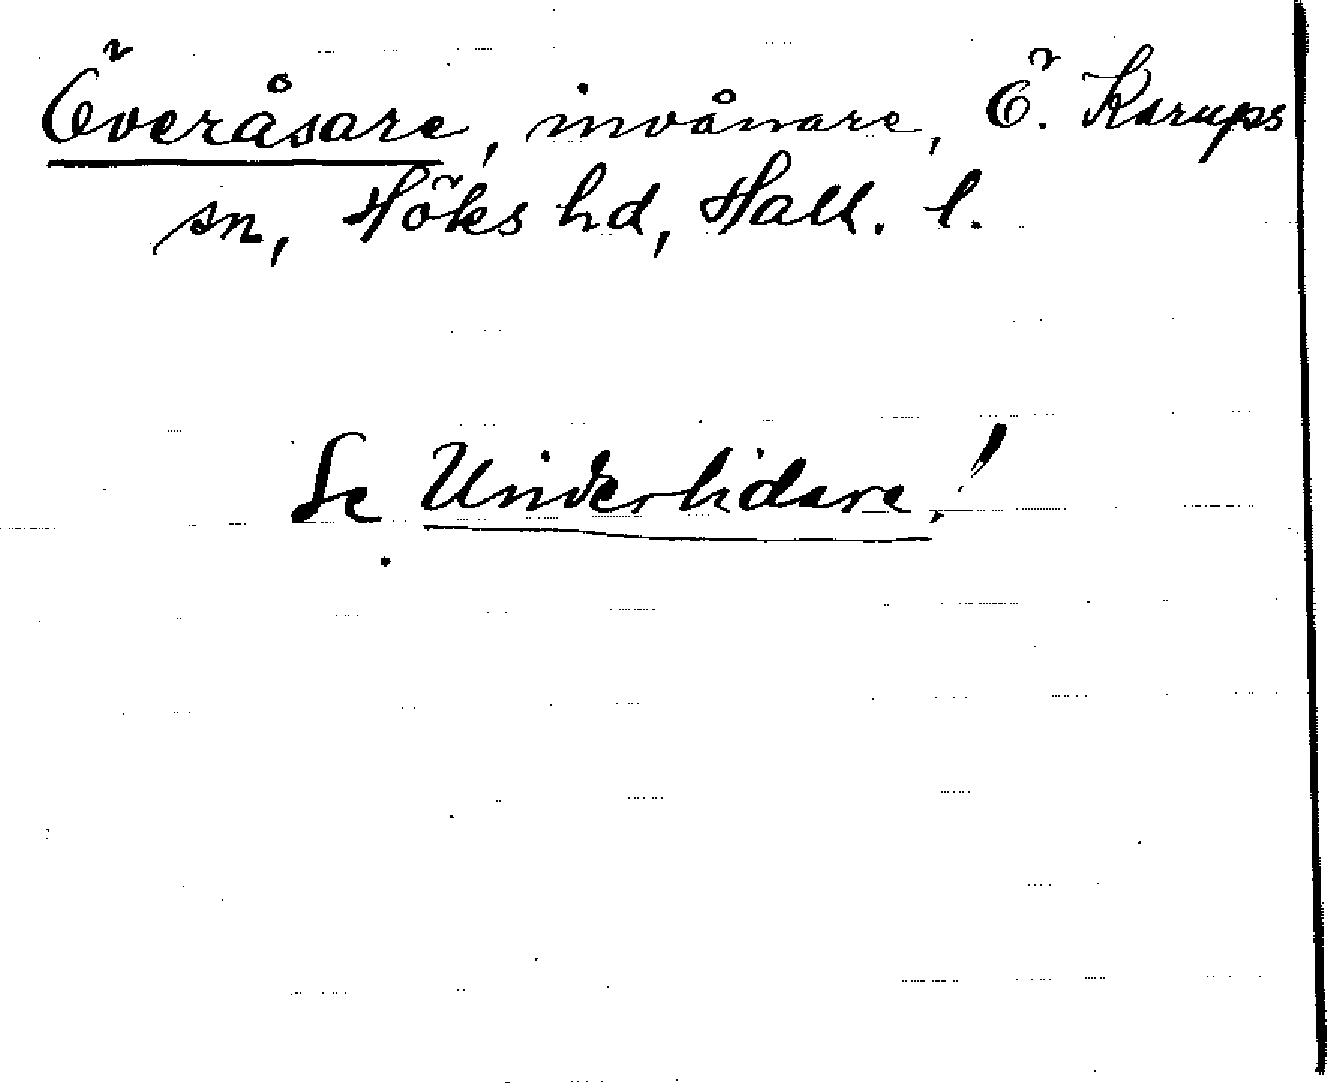 Överåsare, invånare, Ö. Karups
sn, Höks hd, Hall. l.
Se Underlidare!